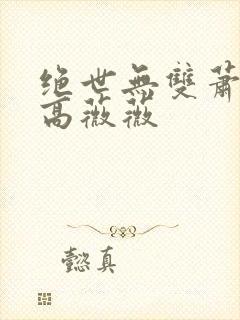 绝世無雙蕭
高薇薇
懿真